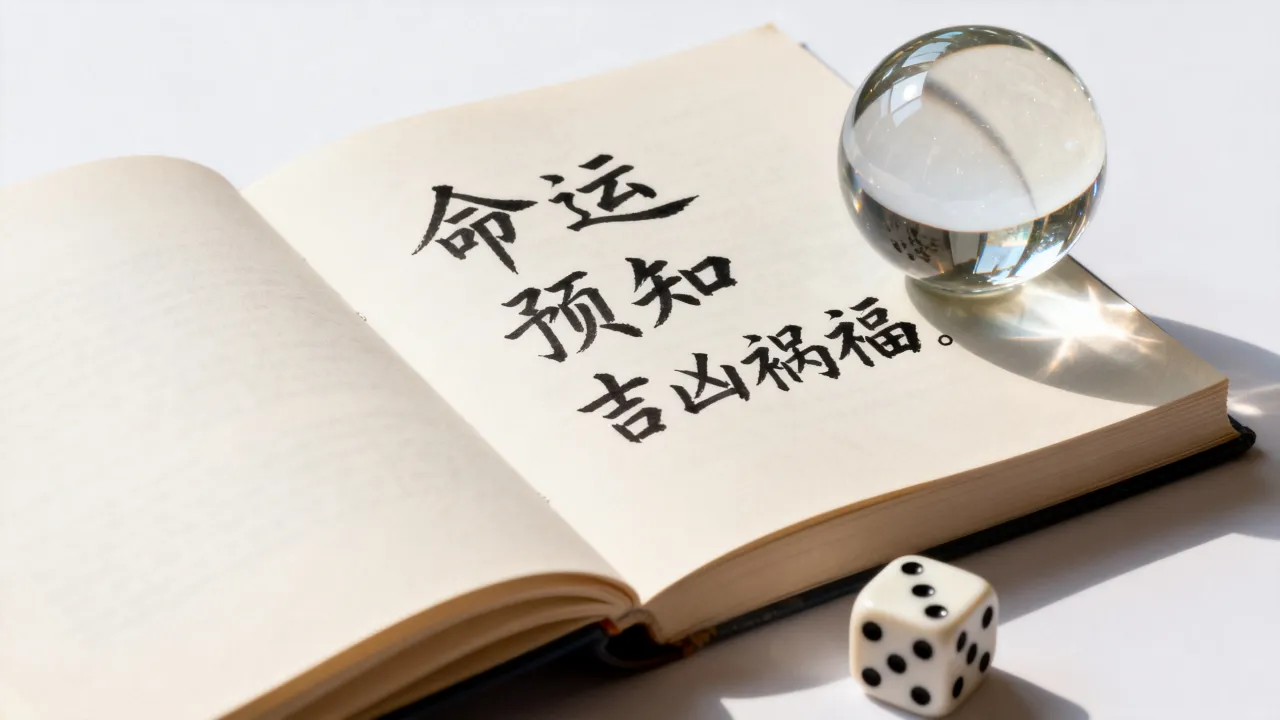 命运
预知
吉凶祸福。